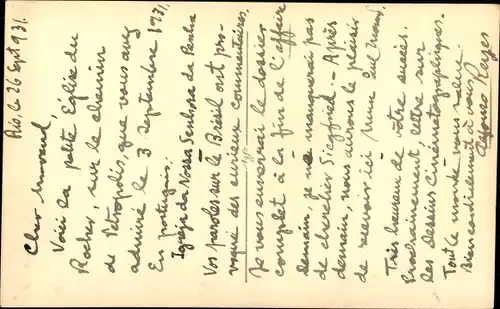 Rio, le 26 Sept 931.
Cher Morand,
Voici la petite Église du
Rocher, sur le chemin
de Pétropolis, que vous avez
admiré le 3 septembre 1931.
En portugais:
Igreja da Nossa Senhora da Penha
Vos paroles sur le Brésil ont pro-
voqué des curieux commentaires.
Je vous enverrai le dossier
complet à la fin de l'affaire
Demain, je ne manquerai pas
de chercher Siegfried. - Après
demain, nous aurons le plaisir
de recevoir ici Mme Paul Morand.
Très heureux de votre succès.
Prochainement lettre sur
les dessins cinématographiques.
Tout le monde vous salue.
Bien cordialement à vous
Alfonso Reyes